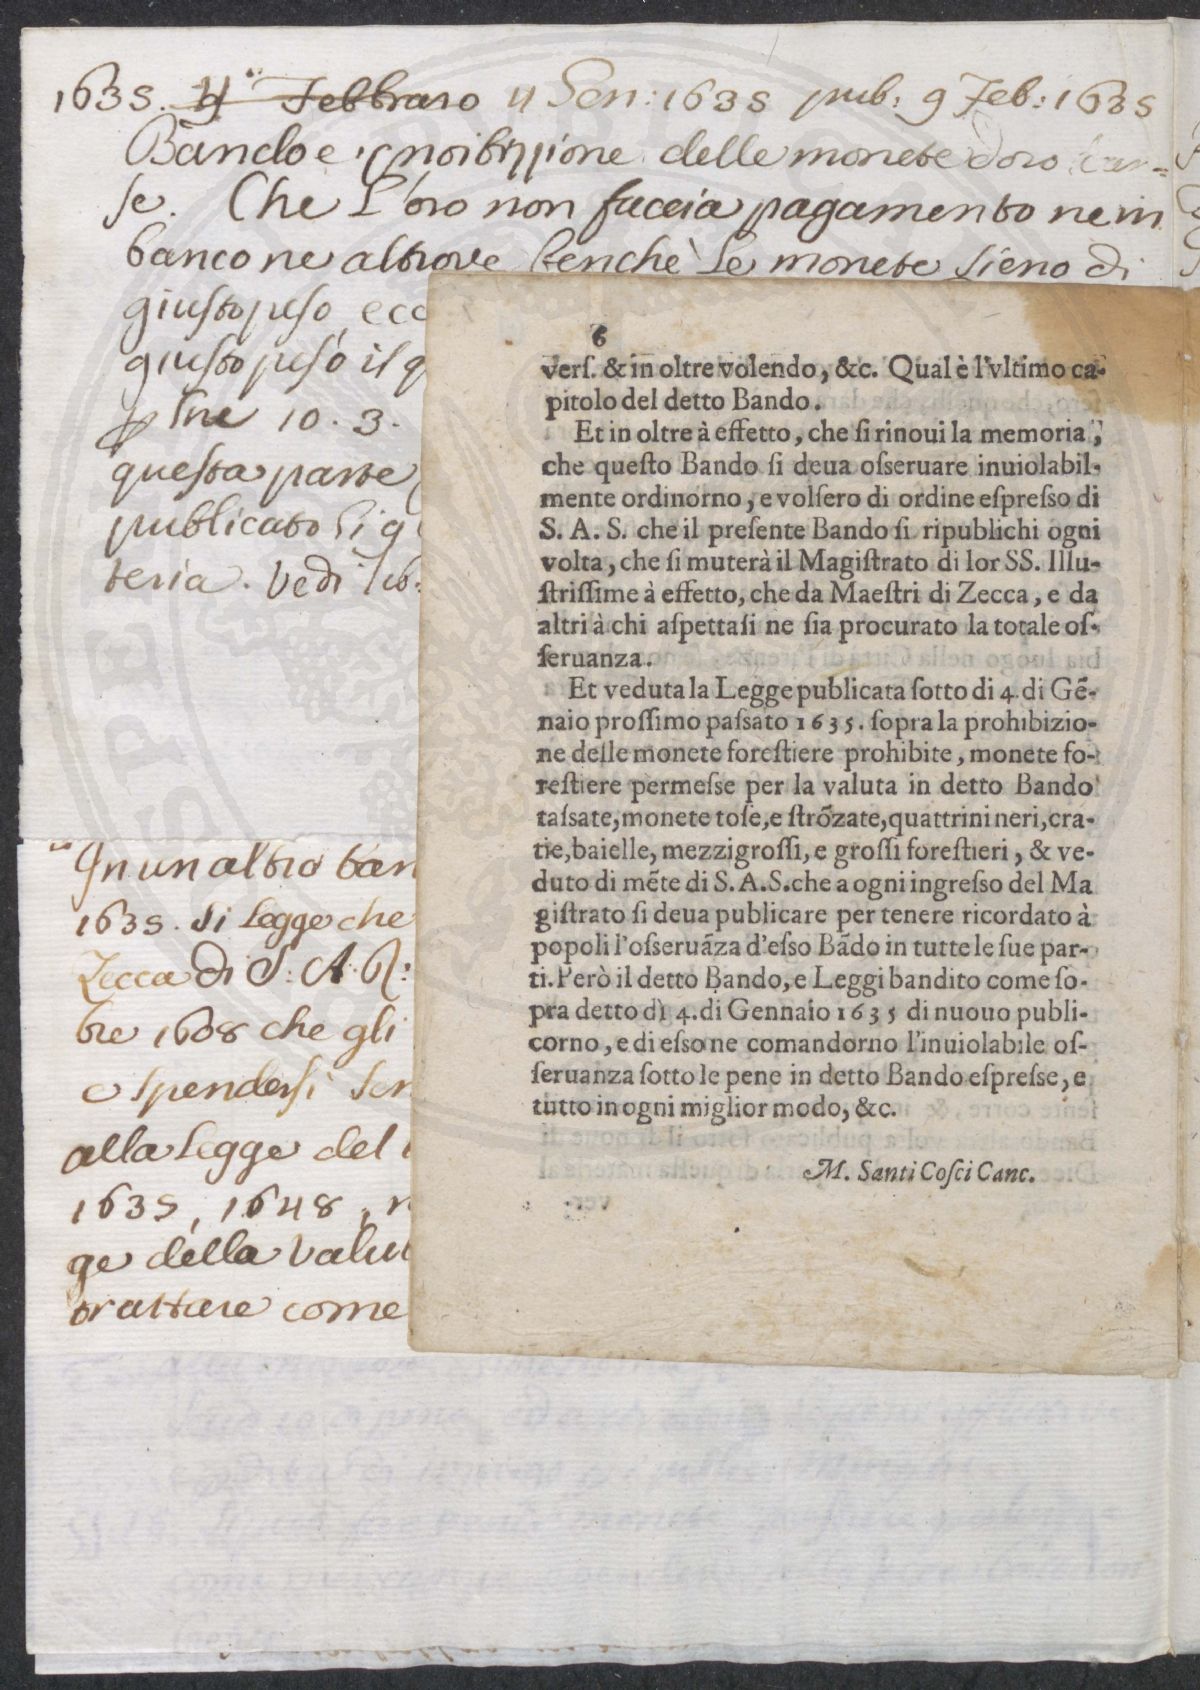 1635. 4 Febbraro 4 Gen: 1635 pub: 9 Feb: 1635
Bando e proibizzione delle monete d'oro scar=
se. Che L'oro non faccia pagamento ne in
banco ne altrove benchè Le monete sieno di
giusto peso, ecc
giusto peso il q
p lire 10. 3.
questa parte
publicato li
teria. Vedi lib:
In un altro ban
1635. si legge che
Zecca di S: A. R:
bre 1608 che gli
e spendersi sen
alla Legge del
1635, 1648,
ge della Valut
trattare come
6
verſ. & in oltre volendo, &c. Qual è l'vltimo ca-
pitolo del detto Bando.
Et in oltre à effetto, che ſi rinoui la memoria,
che queſto Bando ſi deua oſseruare inuiolabil-
mente ordinorno, e volſero di ordine eſpreſso di
S. A. S. che il preſente Bando ſi ripublichi ogni
volta, che ſi muterà il Magiſtrato di lor SS. Illu-
ſtriſſime à effetto, che da Maeſtri di Zecca, e da
altri à chi aſpettaſi ne ſia procurato la totale oſ-
ſeruanza.
Et veduta la Legge publicata ſotto di 4. di Gẽ-
naio proſſimo paſsato 1635. ſopra la prohibizio-
ne delle monete foreſtiere prohibite, monete fo-
reſtiere permeſse per la valuta in detto Bando
taſsate, monete toſe, e ſtrõzate, quattrini neri, cra-
tie, baielle, mezzigroſſi, e groſſi foreſtieri, & ve-
duto di mẽte di S. A. S. che a ogni ingreſso del Ma
giſtrato ſi deua publicare per tenere ricordato à
popoli l'oſseruãza d'eſso Bãdo in tutte le ſue par-
ti. Però il detto Bando, e Leggi bandito come ſo-
pra detto dì 4. di Gennaio 1635 di nuouo publi-
corno, e di eſso ne comandorno l'inuiolabile oſ-
ſeruanza ſotto le pene in detto Bando eſpreſse, e
tutto in ogni miglior modo, &c.
M. Santi Coſci Canc.